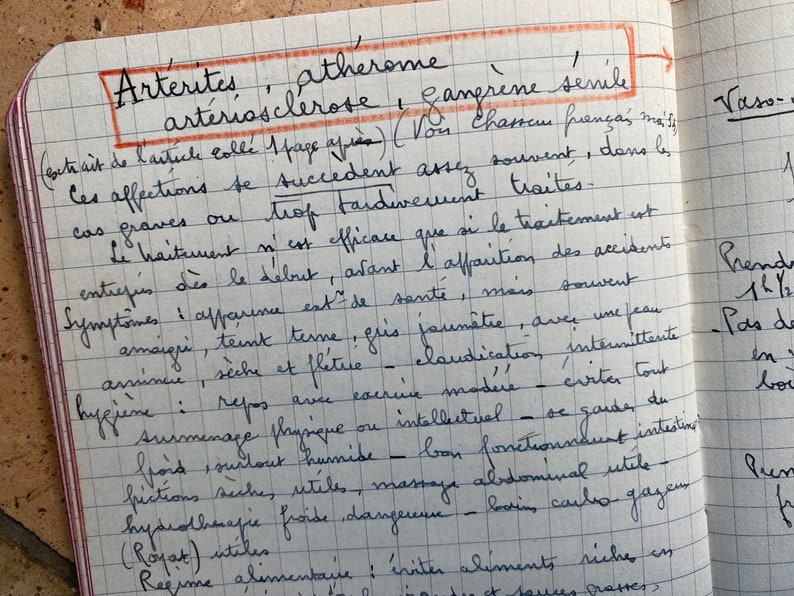 Artérites, athérome
artériosclérose, gangrène sénile
(extrait de l'article collé 1 page après) (Voir Chasseur français, mai 54)
Ces affections se succèdent assez souvent, dans les
cas graves ou trop tardivement traités.
Le traitement n'est efficace que si le traitement est
entrepris dès le début, avant l'apparition des accidents
Symptômes : apparence extre de santé, mais souvent
amaigri, teint terne, gris jaunâtre, avec une peau
amincie, sèche et flétrie - claudication intermittente
hygiène : repos avec exercice modéré - éviter tout
surmenage physique ou intellectuel - se garder du
froid, surtout humide - bon fonctionnement intestinal
frictions sèches utiles, massage abdominal utile -
hydrothérapie froide, dangereuse - bains carbo-gazeux
(Royat) utiles
Régime alimentaire : éviter aliments riches en
et sauces grasses,
Vaso-
Prendre
1h 1/2
- Pas de
en